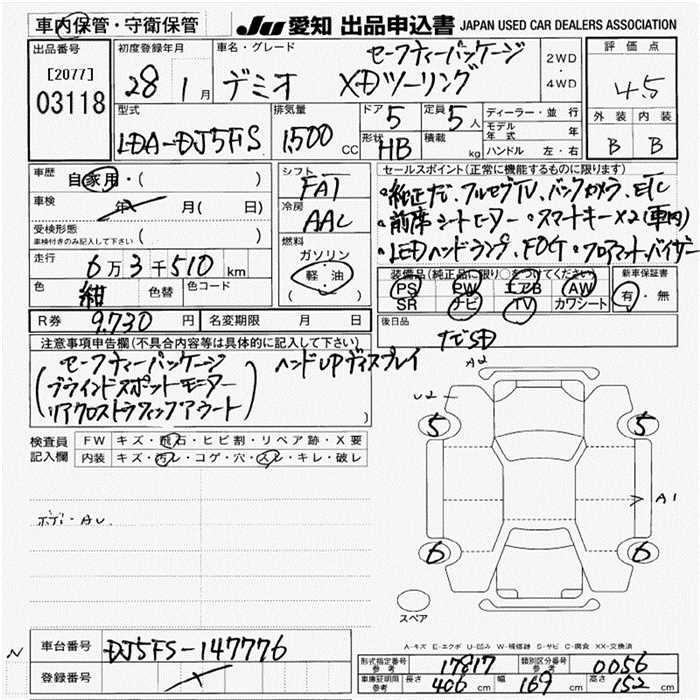 車内保管・守衛保管
JU 愛知 出品申込書 JAPAN USED CAR DEALERS ASSOCIATION
出品番号
[2077]
03118
初度登録年月
28 1月
車名・グレード
デミオ XDツーリング
セーフティーパッケージ
2WD
・
4WD
評価点
4.5
外装 内装
B B
型式
LDA-DJ5FS
排気量
1,500 CC
ドア 5
形状 HB
定員 5人
積載 kg
ディーラー・並行
モデル年式 年
ハンドル 左・右
車歴
自家用・( )
車検
年 月( 日)
受検形態
車検付きのみ記入して下さい ( )
走行
6万3千510km
色 紺 色替 色コード
R券 9,730円 名変期限 月 日
シフト
FAT
冷房
AAC
燃料
ガソリン
軽油
( )
セールスポイント(正常に機能するものに限ります)
・純正ナビ、フルセグTV、バックカメラ、ETC
・前席シートヒーター・スマートキー×2(車内)
・LEDヘッドランプ、FOG・フロアマット、バイザー
装備品(純正品に限り○をつけてください)
PS PW エアB AW
SR ナビ TV カワシート
新車保証書
有・無
後日品
ナビSD
注意事項申告欄(不具合内容等は具体的に記入して下さい)
セーフティーパッケージ ヘッドUPディスプレイ
(ブラインドスポットモニター
リアクロストラフィックアラート)
検査員記入欄
FW キズ・飛石・ヒビ割・リペア跡・X要
内装 キズ・汚レ・コゲ・穴・スレ・キレ・破レ
ボデー AU
AU
U2
5 5
A1
6 6
スペア
A-キズ E-エクボ U-凹み W-補修跡 S-サビ C-腐食 XX-交換済
N
車台番号 DJ5FS-147776
登録番号
形式指定番号参考 17817
類別区分番号参考 0056
車庫証明用参考 長さ 406cm 幅 169cm 高さ 152cm